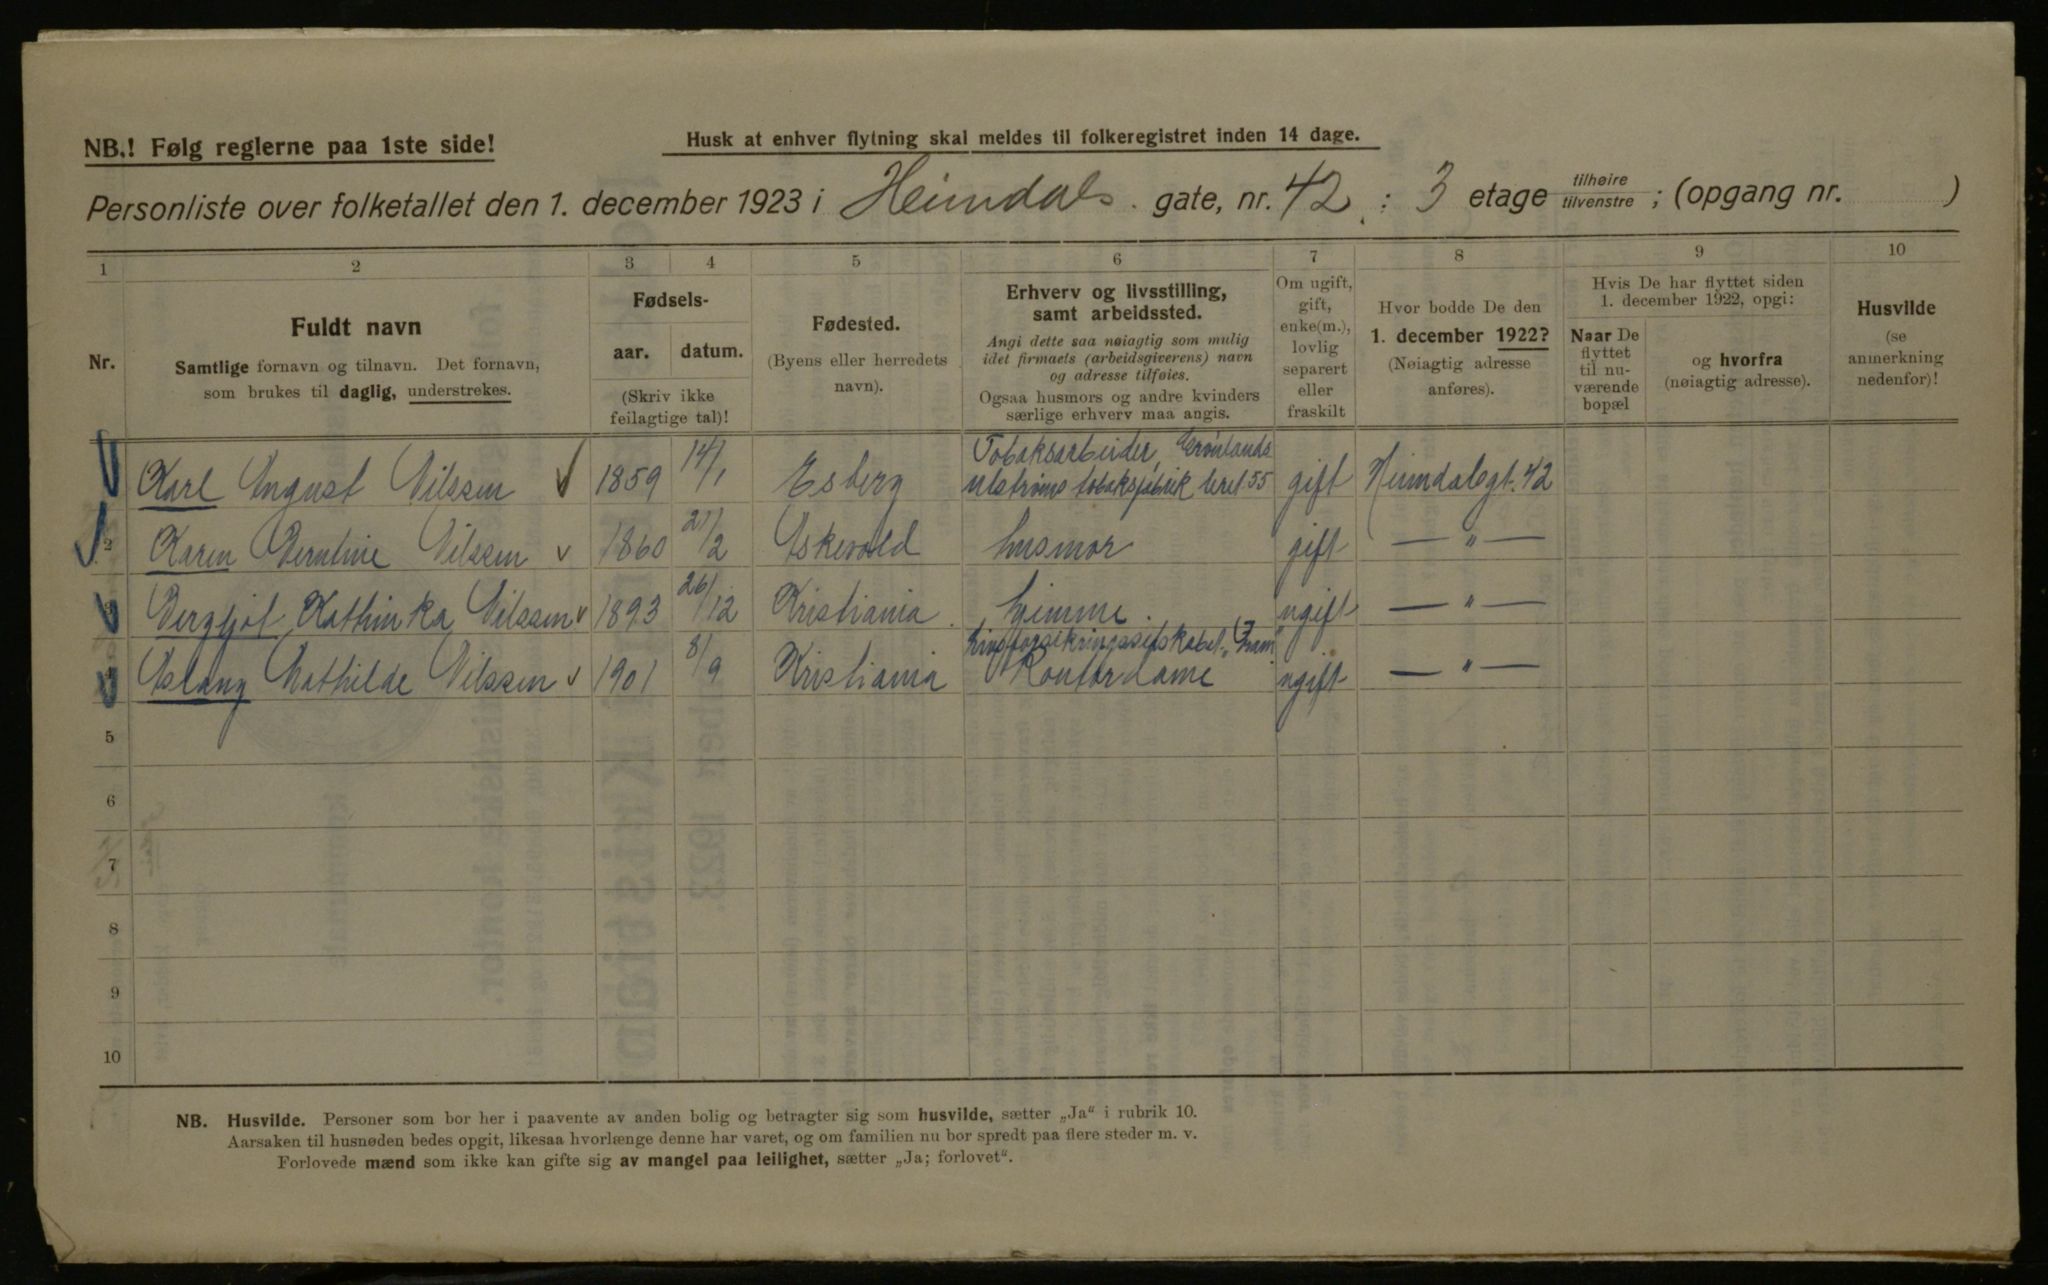 NB.! Følg reglerne paa 1ste side!
Husk at enhver flytning skal meldes til folkeregistret inden 14 dage.
Personliste over folketallet den 1. december 1923 i Heimdals gate, nr. 42 : 3 etage tilhøire tilvenstre ; (opgang nr. )
1 2 3 4 5 6 7 8 9 10
Nr.
Fuldt navn
Samtlige fornavn og tilnavn. Det fornavn,
som brukes til daglig, understrekes.
Fødsels-
aar. datum.
(Skriv ikke
feilagtige tal)!
Fødested.
(Byens eller herredets
navn).
Erhverv og livsstilling,
samt arbeidssted.
Angi dette saa nøiagtig som mulig
idet firmaets (arbeidsgiverens) navn
og adresse tilføies.
Ogsaa husmors og andre kvinders
særlige erhverv maa angis.
Om ugift,
gift,
enke(m.),
lovlig
separert
eller
fraskilt
Hvor bodde De den
1. december 1922?
(Nøiagtig adresse
anføres).
Hvis De har flyttet siden
1. december 1922, opgi:
Naar De
flyttet
til nu-
værende
bopæl
og hvorfra
(nøiagtig adresse).
Husvilde
(se
anmerkning
nedenfor)!
Karl August Nilssen 1859 14/1 Esberg Tobaksarbeider, Grønlands
tobaksfabrik leret 55 gift Heimdalsgt. 42
2 Karen Berntine Nilssen 1860 21/2 Askevold husmor gift — " —
3 Bergljot Kathinka Nilssen 1893 26/12 Kristiania hjemme. ugift — " —
4 Aslaug Mathilde Nilssen 1901 8/9 Kristiania Livsforsikringsselskabet „Fram"
Kontordame ugift — " —
5
6
7
8
9
10
NB. Husvilde. Personer som bor her i paavente av anden bolig og betragter sig som husvilde, sætter „Ja" i rubrik 10.
Aarsaken til husnøden bedes opgit, likesaa hvorlænge denne har varet, og om familien nu bor spredt paa flere steder m. v.
Forlovede mænd som ikke kan gifte sig av mangel paa leilighet, sætter „Ja; forlovet".